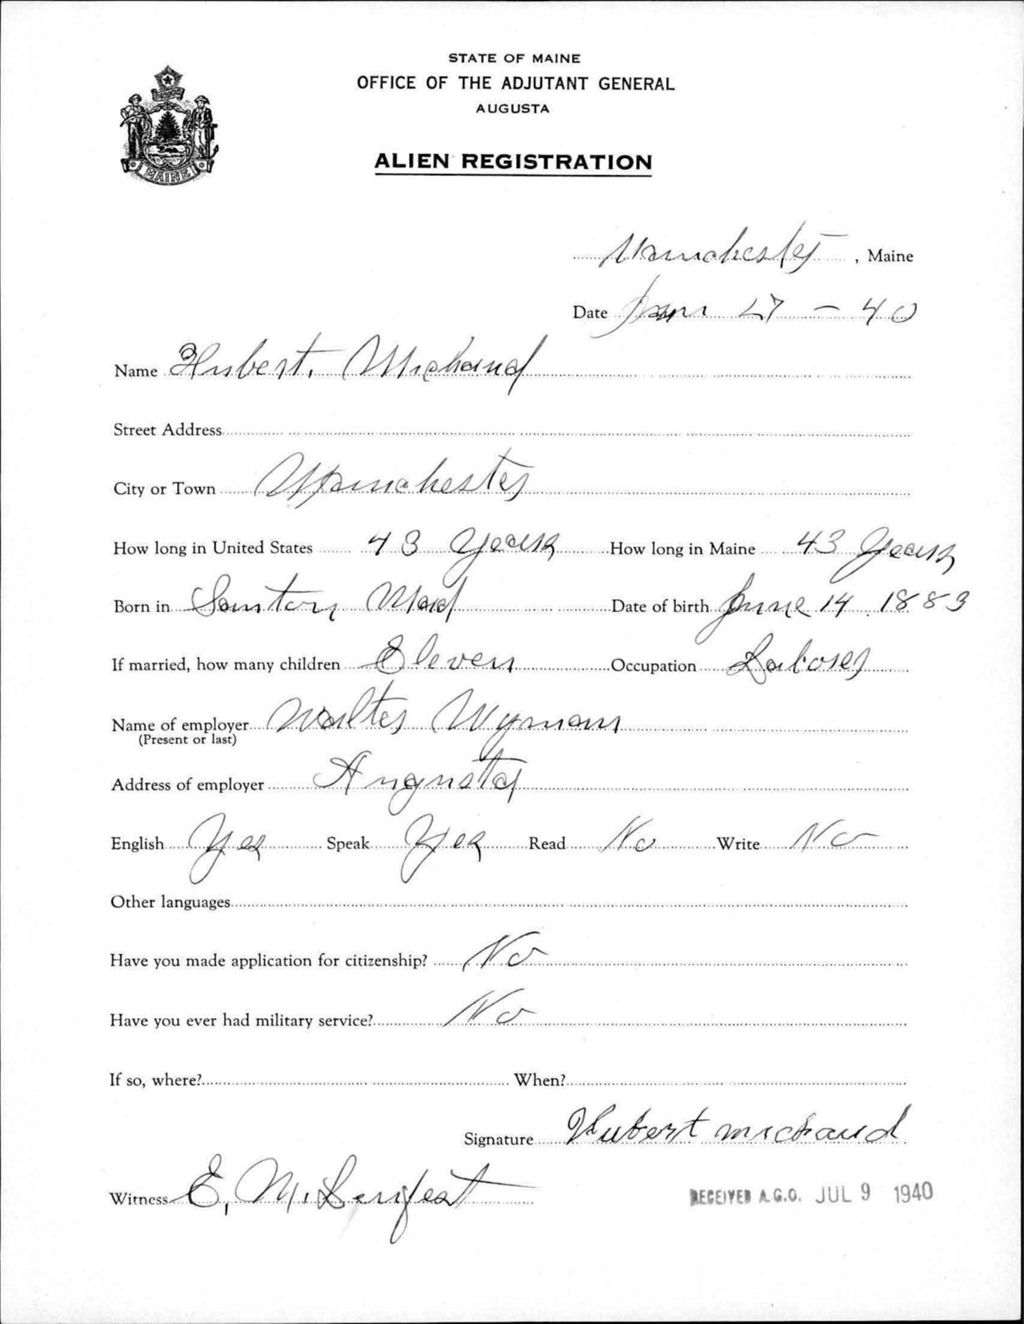 STATE OF MAINE
OFFICE OF THE ADJUTANT GENERAL
AUGUSTA
ALIEN REGISTRATION
MAINE
Manchester, Maine
Date 27 - 40
Name Hubert. Michaud
Street Address
City or Town Manchester
How long in United States 43 Years How long in Maine 43 Years
Born in Date of birth June 14 1883
If married, how many children Eleven Occupation Laborer
Name of employer Walter Wyman
(Present or last)
Address of employer Augusta
English Yes Speak Yes Read No Write No
Other languages
Have you made application for citizenship? No
Have you ever had military service? No
If so, where? When?
Signature Hubert michaud
Witness E. M.
RECEIVED A.G.O. JUL 9 1940